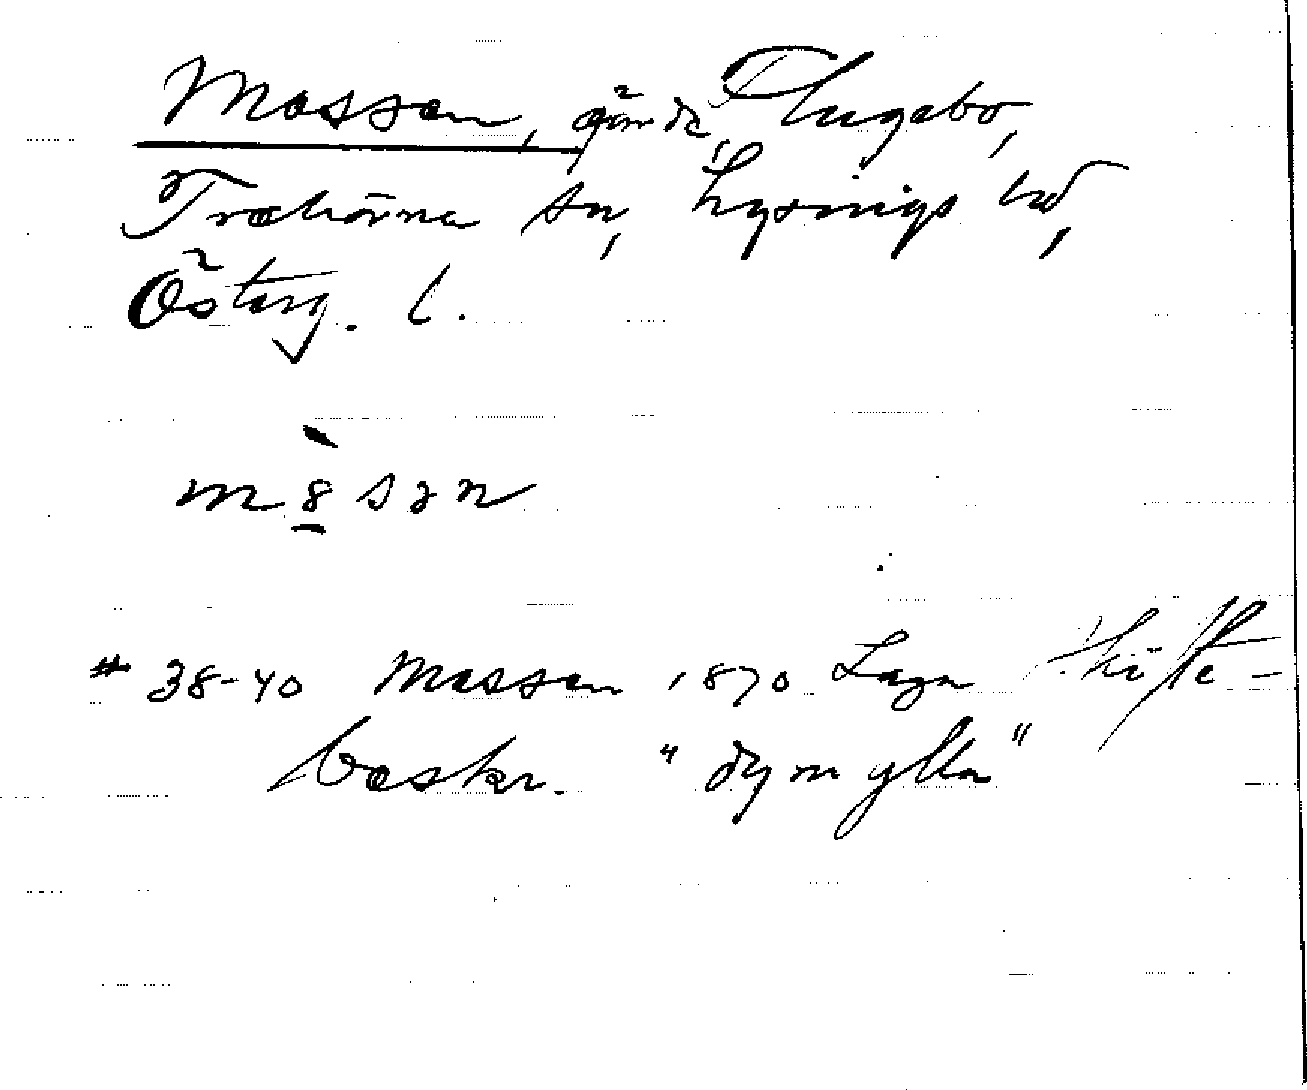 Mossen, gärde, Flugebo,
Trehörna sn, Lysings hd,
Österg. l.
m8̠̀sən
# 38-40 Mossen 1870 Laga skifte-
beskr. "dymylla"